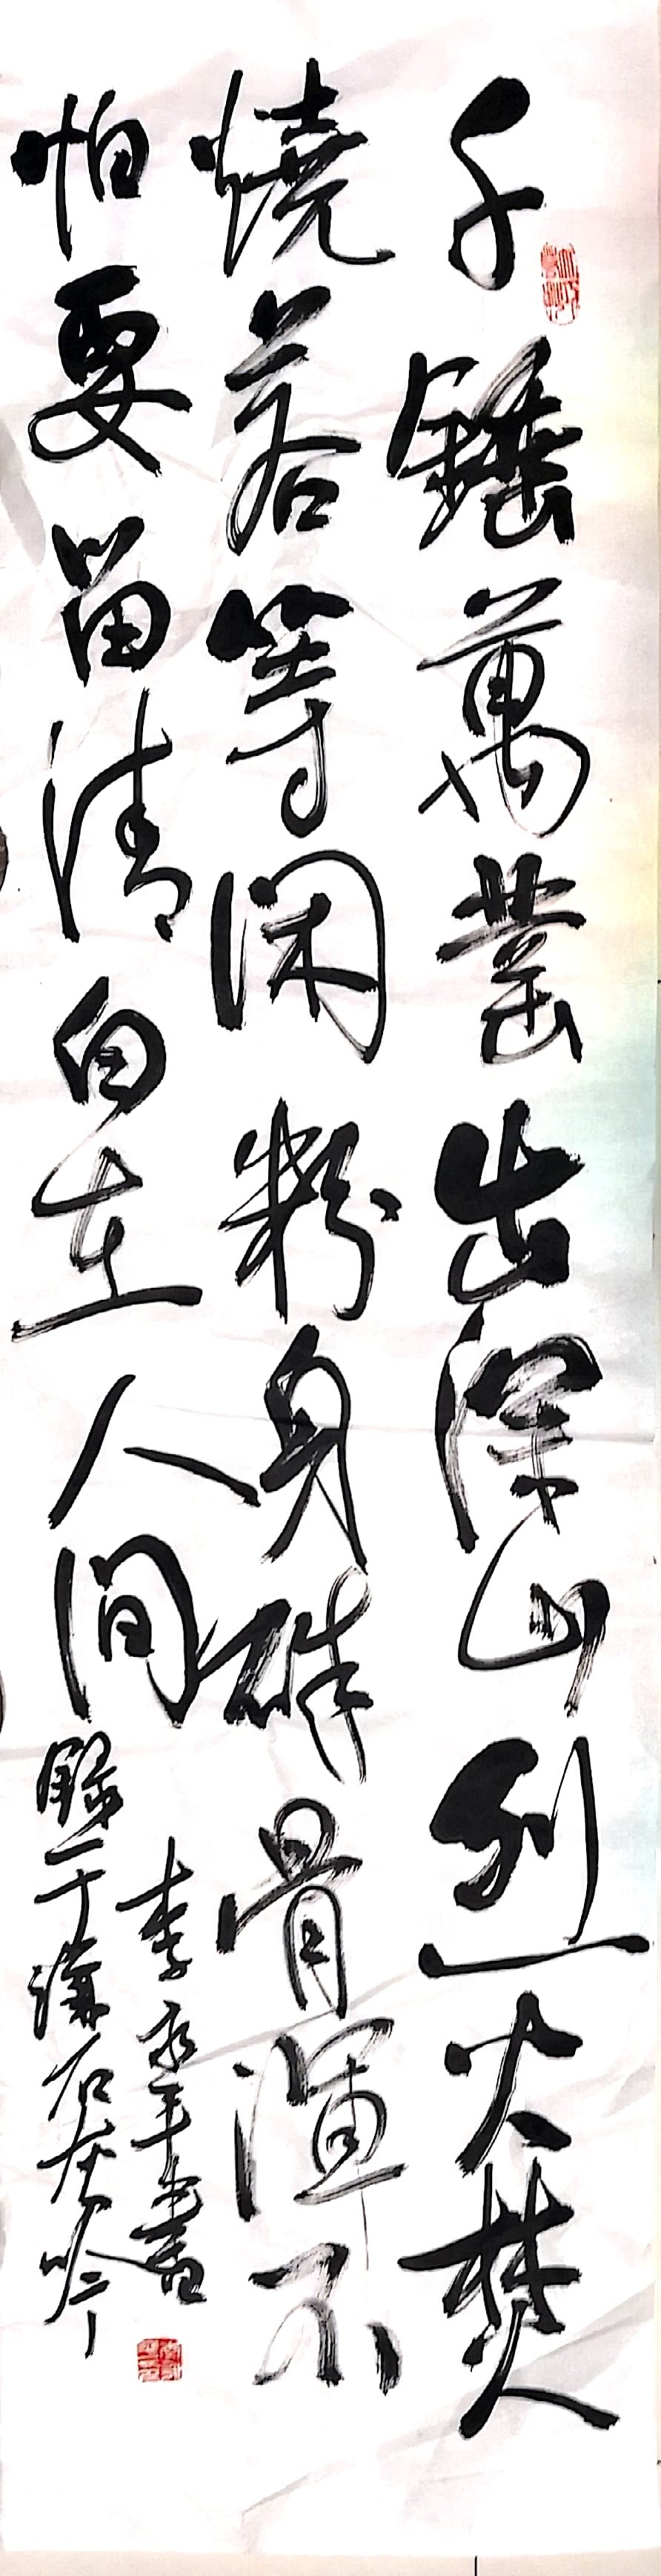 千錘萬凿出深山烈火焚
燒若等闲粉身碎骨渾不
怕要留清白在人间
錄于謙石灰吟
李永平書